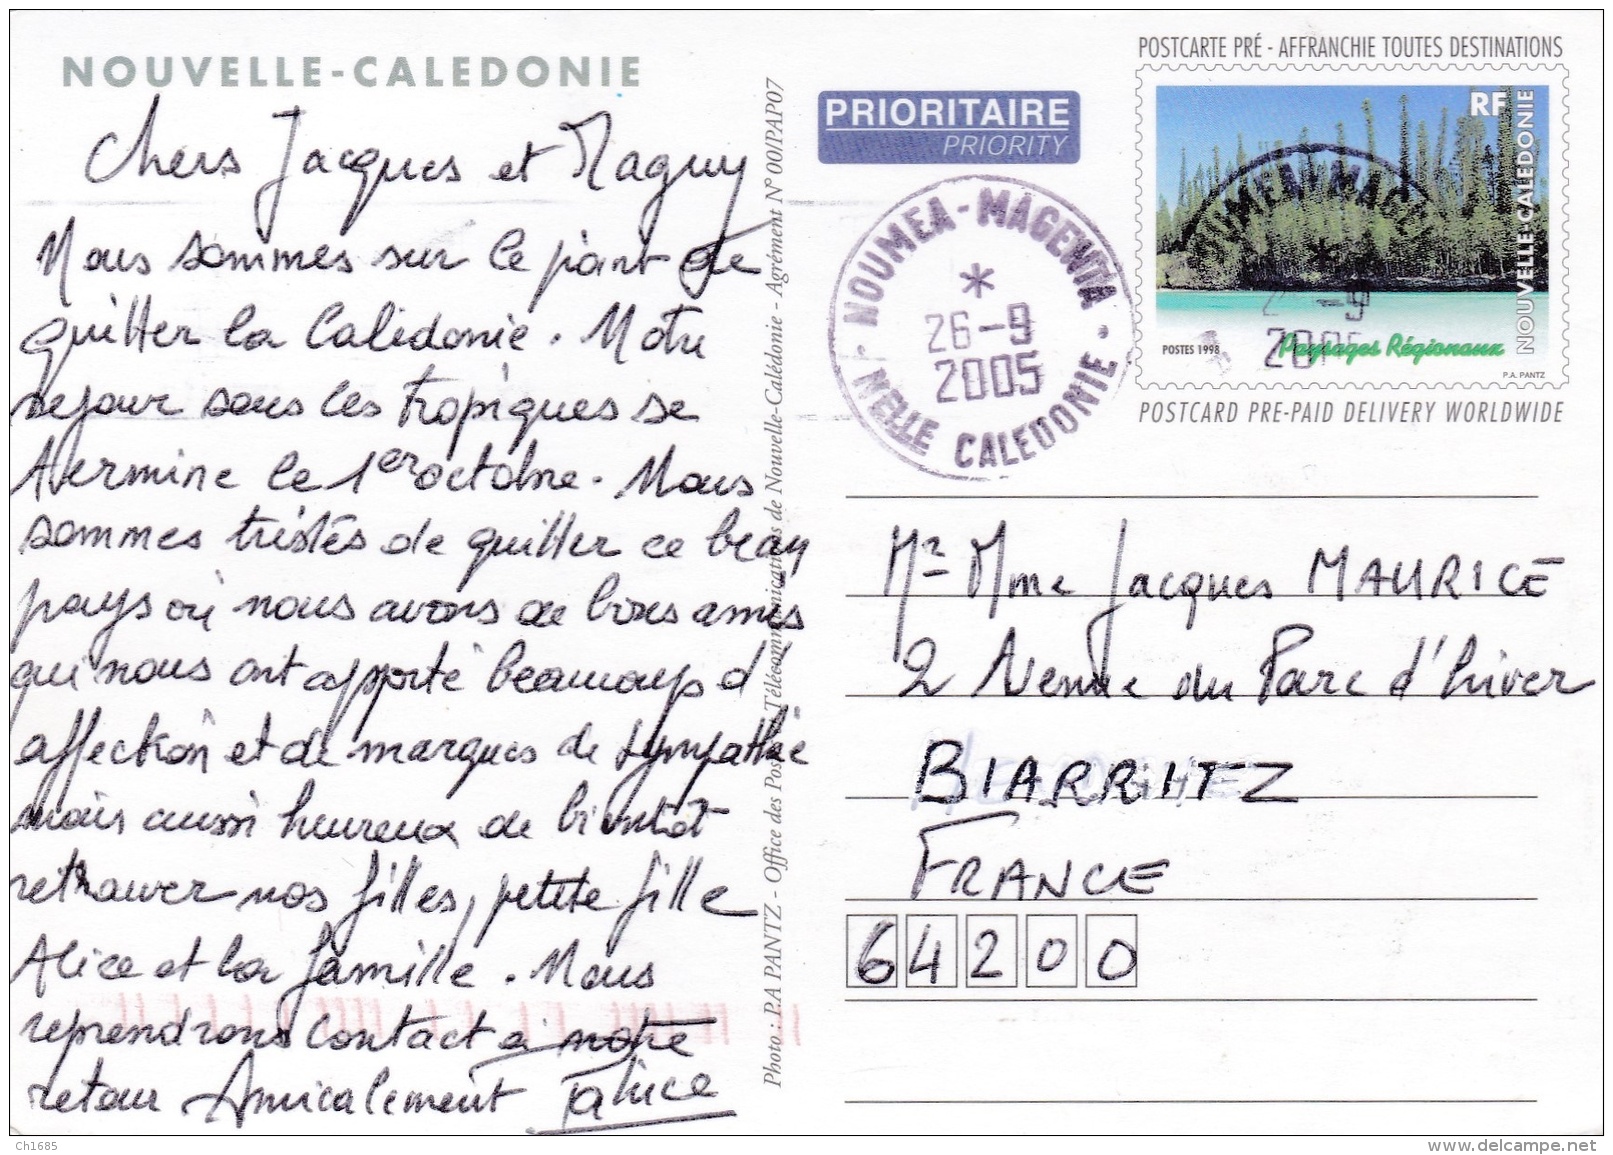 NOUVELLE-CALEDONIE
Chers Jacques et Maguy
Nous sommes sur le point de
quitter la Calédonie. Notre
sejour sous les tropiques se
termine le 1er octobre. Nous
sommes tristes de quitter ce beau
pays où nous avons de bons amis
qui nous ont apporté beaucoup d'
affection et de marques de sympathie
mais aussi heureux de bientôt
retrouver nos filles, petite fille
Alice et la famille. Nous
reprendrons contact à notre
retour Amicalement
Photo : P.A PANTZ - Office des Postes et Télécommunications de Nouvelle-Calédonie - Agrément N° 00/PAP07
PRIORITAIRE
PRIORITY
NOUMEA-MAGENTA
*
26-9
2005
NELLE CALEDONIE
POSTCARTE PRÉ - AFFRANCHIE TOUTES DESTINATIONS
RF
NOUVELLE-CALÉDONIE
NOUMEA-MAGE
-9
2005
POSTES 1998
Paysages Régionaux
P.A. PANTZ
POSTCARD PRE-PAID DELIVERY WORLDWIDE
Mr Mme Jacques MAURICE
2 Avenue du Parc d'hiver
BIARRITZ
FRANCE
64200
Ch1685
www.delcampe.net